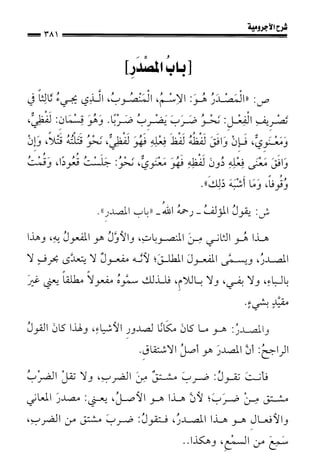 شرح الآجرومية
٣٨١
[بابُ المَصْدَرِ]
ص: «المَصْدَرُ هُوَ: الاِسْمُ، المَنْصُوبُ، الَّذِي يَجِيءُ ثَالِثاً فِي
تَصْرِيفِ الْفِعْلِ: نَحْوُ ضَرَبَ يَضْرِبُ ضَرْبًا. وَهُوَ قِسْمَانِ: لَفْظِيٌّ،
وَمَعْنَوِيٌّ، فَإِنْ وَافَقَ لَفْظُهُ لَفْظَ فِعْلِهِ فَهُوَ لَفْظِيٌّ، نَحْوُ قَتَلْتُهُ قَتْلًا، وَإِنْ
وَافَقَ مَعْنَى فِعْلِهِ دُونَ لَفْظِهِ فَهُوَ مَعْنَوِيٌّ، نَحْوُ: جَلَسْتُ قُعُودًا، وَقُمْتُ
وُقُوفاً، وَمَا أَشْبَهَ ذَلِكَ».
ش: يقولُ المؤلفُ ـ رحمهُ اللهُ ـ «باب المصدرِ».
هـذا هُـو الثاني مِـنَ المنصوباتِ، والأوَّلُ هو المفعولُ بِهِ، وهذا
المصدرُ، ويسمَّى المفعولَ المطلقَ؛ لأنَّـه مفعولٌ لا يتعدَّى بحرفٍ لا
بالباءِ، ولا بفي، ولا باللامِ، فلذلك سمَّوهُ مفعولاً مطلقاً يعني غيرَ
مقيَّدٍ بشيءٍ.
والمصدرُ: هـو مـا كـانَ مكانًا لصدورِ الأشياءِ، ولهذا كانَ القولُ
الراجحُ: أنَّ المصدرَ هو أصلُ الاشتقاقِ.
فأنـتَ تقـولُ: ضـربَ مشـتقٌّ مِنَ الضربِ، ولا تقلْ الضربُ
مشتق مِـنْ ضـربَ؛ لأنَّ هذا هـو الأصـلُ، يعني: مصدرَ المعاني
والأفعالِ هو هـذا المصدرُ، فتقولُ: ضربَ مشتق من الضربِ،
سَمِعَ من السمْعِ، وهكذا..